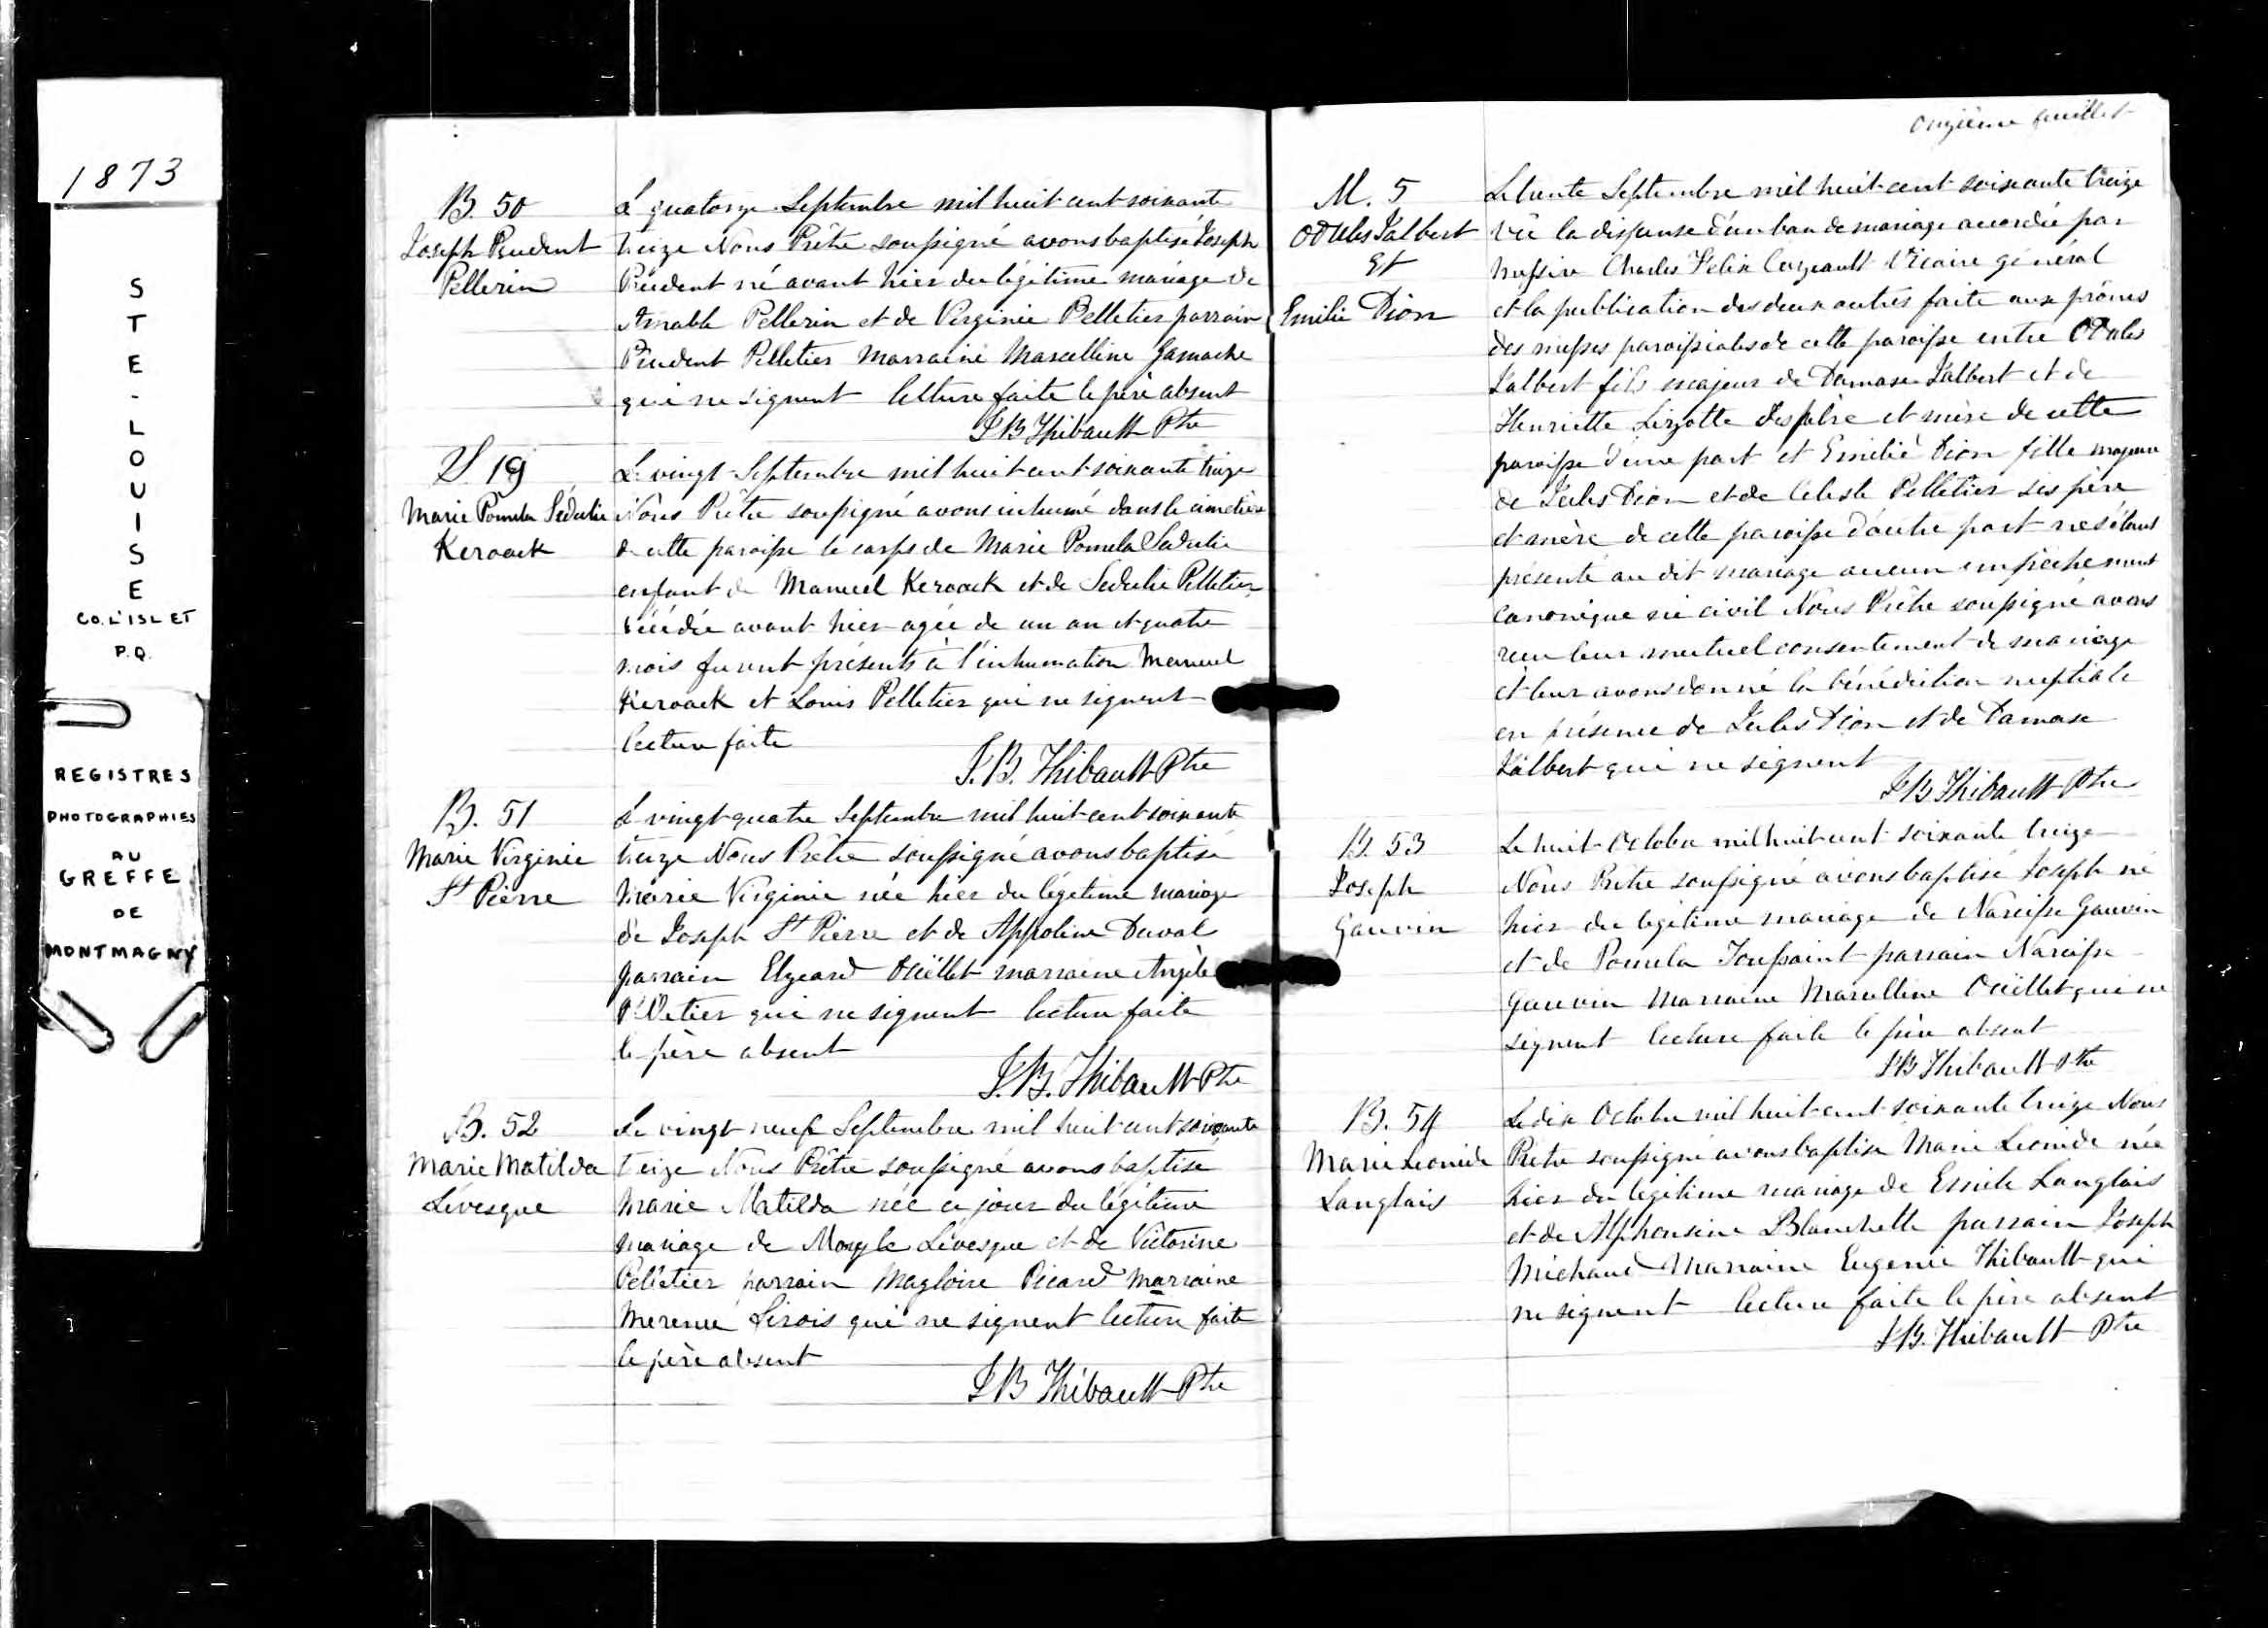 1873
STE-LOUISE
CO. L'ISLET
P.Q.
REGISTRES
PHOTOGRAPHIES
AU
GREFFE
DE
MONTMAGNY
B. 50
Joseph Prudent
Pellerin
Le quatorze Septembre mil huit cent soixante
treize Nous Prêtre soussigné avons baptisé Joseph
Prudent né avant hier du légitime mariage de
Amable Pellerin et de Virginie Pelletier parrain
Prudent Pelletier Marraine Marcelline Gamache
qui ne signent lecture faite le père absent
J B Thibault Ptre
S. 19
Marie Pomela Sédulie
Keroack
Le vingt Septembre mil huit cent soixante treize
Nous Prêtre soussigné avons inhumé dans le cimetière
de cette paroisse le corps de Marie Pomela Sedulie
enfant de Manuel Keroack et de Sedulie Pelletier
décédée avant hier agée de un an et quatre
mois furent présents à l'inhumation Manuel
Keroack et Louis Pelletier qui ne signent
lecture faite
J. B. Thibault Ptre
B. 51
Marie Virginie
St Pierre
Le vingt quatre Septembre mil huit cent soixante
treize Nous Prêtre soussigné avons baptisé
Marie Virginie née hier du légitime mariage
de Joseph St Pierre et de Appoline Duval
parrain Elzeard Ouëllet marraine Angèle
Pelletier qui ne signent lecture faite
le père absent
J. B. Thibault Ptre
B. 52
Marie Matilda
Lévesque
Le vingt neuf Septembre mil huit cent soixante
treize Nous Prêtre soussigné avons baptisé
Marie Matilda née ce jour du légitime
mariage de Lévesque et de Victorine
Pelletier parrain Magloire Picard marraine
Sirois qui ne signent lecture faite
le père absent
J B Thibault Ptre
Onzième feuillet
M. 5
Odules Jalbert
Et
Emilie Dion
Le trente Septembre mil huit cent soixante treize
vû la dispense d'un ban de mariage accordée par
Messire Charles Felix Cazeault Vicaire général
et la publication des deux autres faite aux prônes
des messes paroissiales de cette paroisse entre Odules
Jalbert fils majeur de Damase Jalbert et de
Henriette Lizotte ses père et mère de cette
paroisse d'une part et Emilie Dion fille majeure
de Jules Dion et de Celeste Pelletier ses père
et mère de cette paroisse d'autre part ne s'étant
présenté au dit mariage aucun empêchement
canonique ni civil Nous Prêtre soussigné avons
reçu leur mutuel consentement de mariage
et leur avons donné la bénédiction nuptiale
en présence de Jules Dion et de Damase
Jalbert qui ne signent
J B Thibault Ptre
B. 53
Joseph
Gauvin
Le huit Octobre mil huit cent soixante treize
Nous Prêtre soussigné avons baptisé Joseph né
hier du légitime mariage de Narcisse Gauvin
et de Pomela Toussaint parrain Narcisse
Gauvin Marraine Marcelline Ouëllet qui ne
signent lecture faite le père absent
J B Thibault Ptre
B. 54
Marie Leonide
Langlais
Le dix Octobre mil huit cent soixante treize Nous
Prêtre soussigné avons baptisé Marie Leonide née
hier du légitime mariage de Emile Langlais
et de Alphonsine Blanchette parrain Joseph
Michaud Marraine Eugenie Thibault qui
ne signent lecture faite le père absent
J B. Thibault Ptre